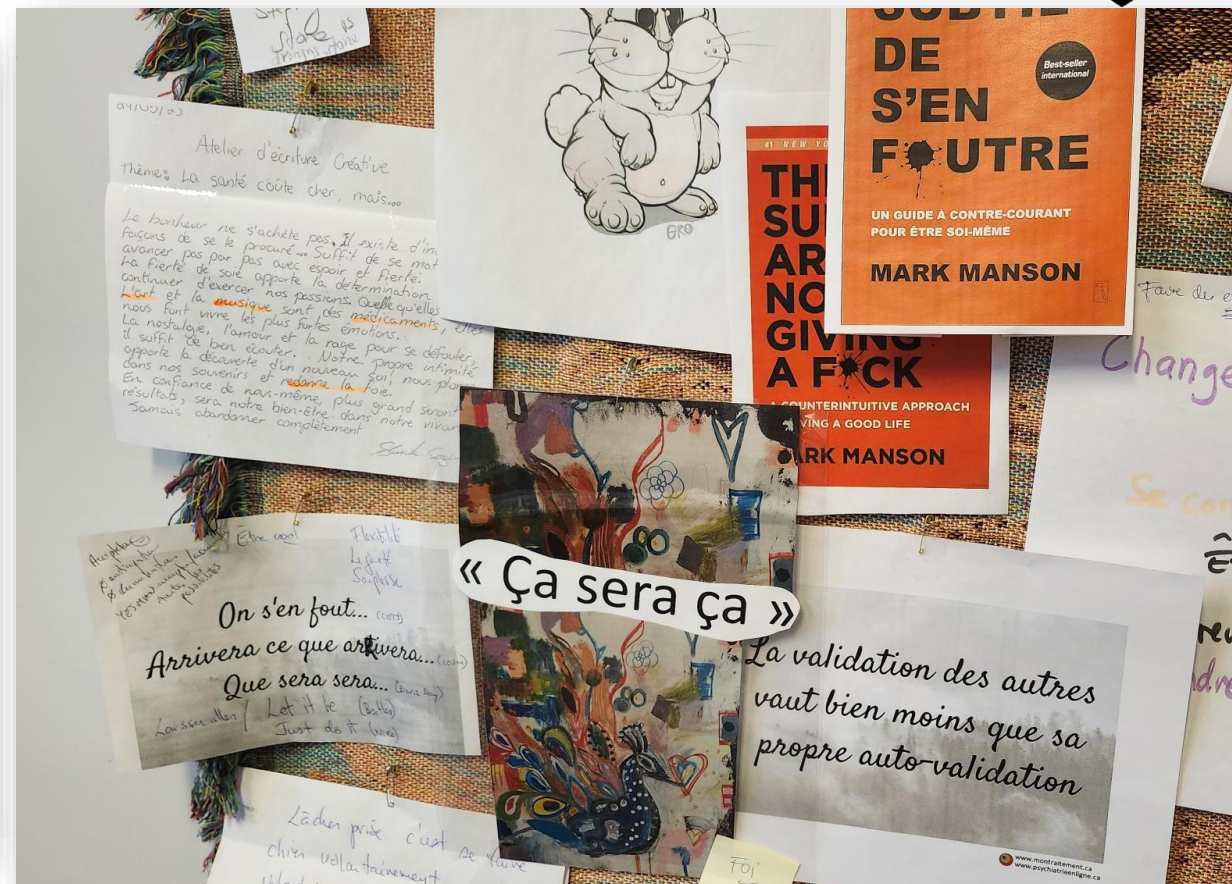 04/05/23
Atelier d'écriture Créative
Thème: La santé coûte cher, mais...
Le bonheur ne s'achète pas. Il existe d'in
façons de se le procuré... Suffit de se mot
avancer pas par pas avec espoir et fierté.
La fierté de soie apporte la détermination
continuer d'exercer nos passions. Quelle qu'elles
L'art et la musique sont des médicaments, elles
nous font vivre les plus fortes émotions.
La nostalgie, l'amour et la rage pour se défouler,
il suffit de bien écouter. Notre propre intimité
apporte la découverte d'un nouveau Soi, nous plon
dans nos souvenirs et redonne la foie.
En confiance de nous-même, plus grand seront
résultats, sera notre bien-être dans notre vivan
Jamais abandonner complètement
GRO
SUBTIL
DE
S'EN
FOUTRE
Best-seller
international
UN GUIDE À CONTRE-COURANT
POUR ÊTRE SOI-MÊME
MARK MANSON
#1 NEW YO
TH
SU
AR
NO
GIVING
A F*CK
A COUNTERINTUITIVE APPROACH
VING A GOOD LIFE
MARK MANSON
Faire des e
Change
Se con
Ê
Être cool
Flexibilité
Légerté
Souplesse
On s'en fout...
Arrivera ce que arrivera...
Que sera sera... (Doris Day)
Laisser aller / Let it be (Beatles)
Just do it (Nike)
« Ça sera ça »
La validation des autres
vaut bien moins que sa
propre auto-validation
www.montraitement.ca
www.psychiatrieenligne.ca
Lâcher prise c'est se faire
chier volontairement
FOI